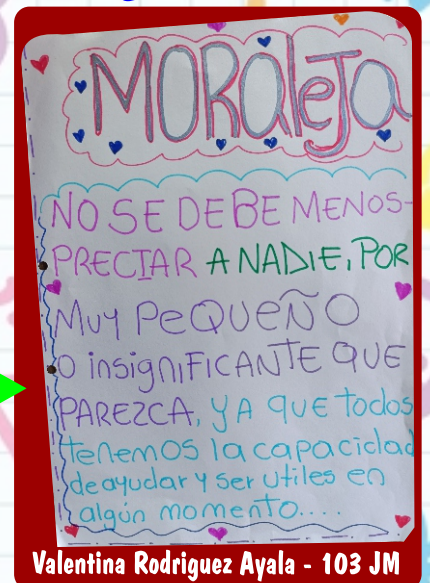 MORALEJA
NO SE DEBE MENOS-
PRECIAR A NADIE, POR
MUY PEQUEÑO
O insigniFICANTE QUE
PAREZCA, YA QUE todos
tenemos la capacidad
de ayudar y ser utiles en
algún momento....
Valentina Rodriguez Ayala - 103 JM